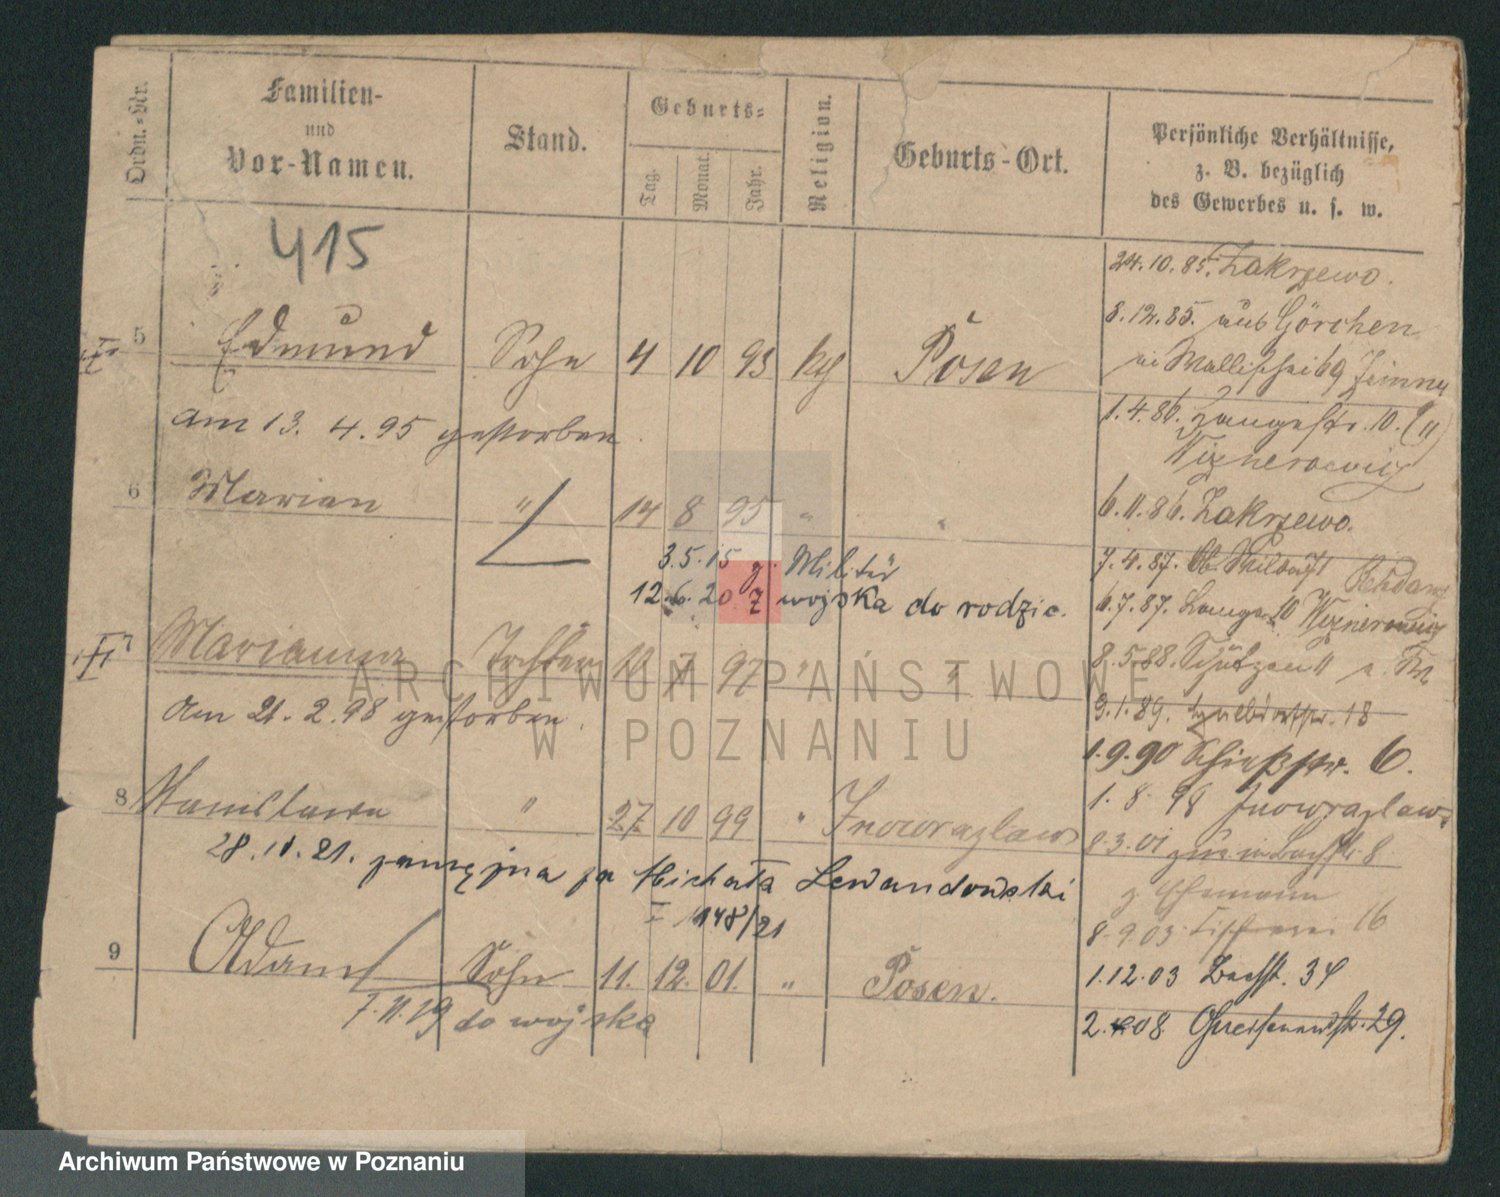 Ordn.-Nr.
Familien-
und
Vor-Namen.
Stand.
Geburts-
Tag.
Monat.
Jahr.
Religion.
Geburts-Ort.
Persönliche Verhältnisse,
z. B. bezüglich
des Gewerbes u. s. w.
415
24.10.85. Zakrzewo.
8.12.85. aus Görchen
5 Edmund Sohn 4 10 93 kg Posen
am 13. 4. 95 gestorben
1.4.86. Langestr. 10.
6 Marian " 14 8 95 " "
6.11.86. Zakrzewo.
3.5.15 z. Militär
7.4.87.
12.6.20 z wojska do rodzic.
6.7.87. 10
Marianna Tochter 10 7 97 " "
8.5.88. Schützen 11
am 21. 2. 98 gestorben.
3.1.89. 18
1.9.90 Schießstr. 6.
8 Stanislawa " 27 10 99 " Inowrazlaw
1. 8. 98 Inowrazlaw
8.3.01 8
28.11.21. zamężna za Michała Lewandowski
I 1148/21
z Ehemann
8.9.03 Fischerei 16
9 Adam Sohn 11. 12. 01. " Posen.
1.12.03 Bachst. 34
7.11.19 do wojska
2. 08 Gneisenaustr. 29.
ARCHIWUM PAŃSTWOWE
W POZNANIU
Archiwum Państwowe w Poznaniu